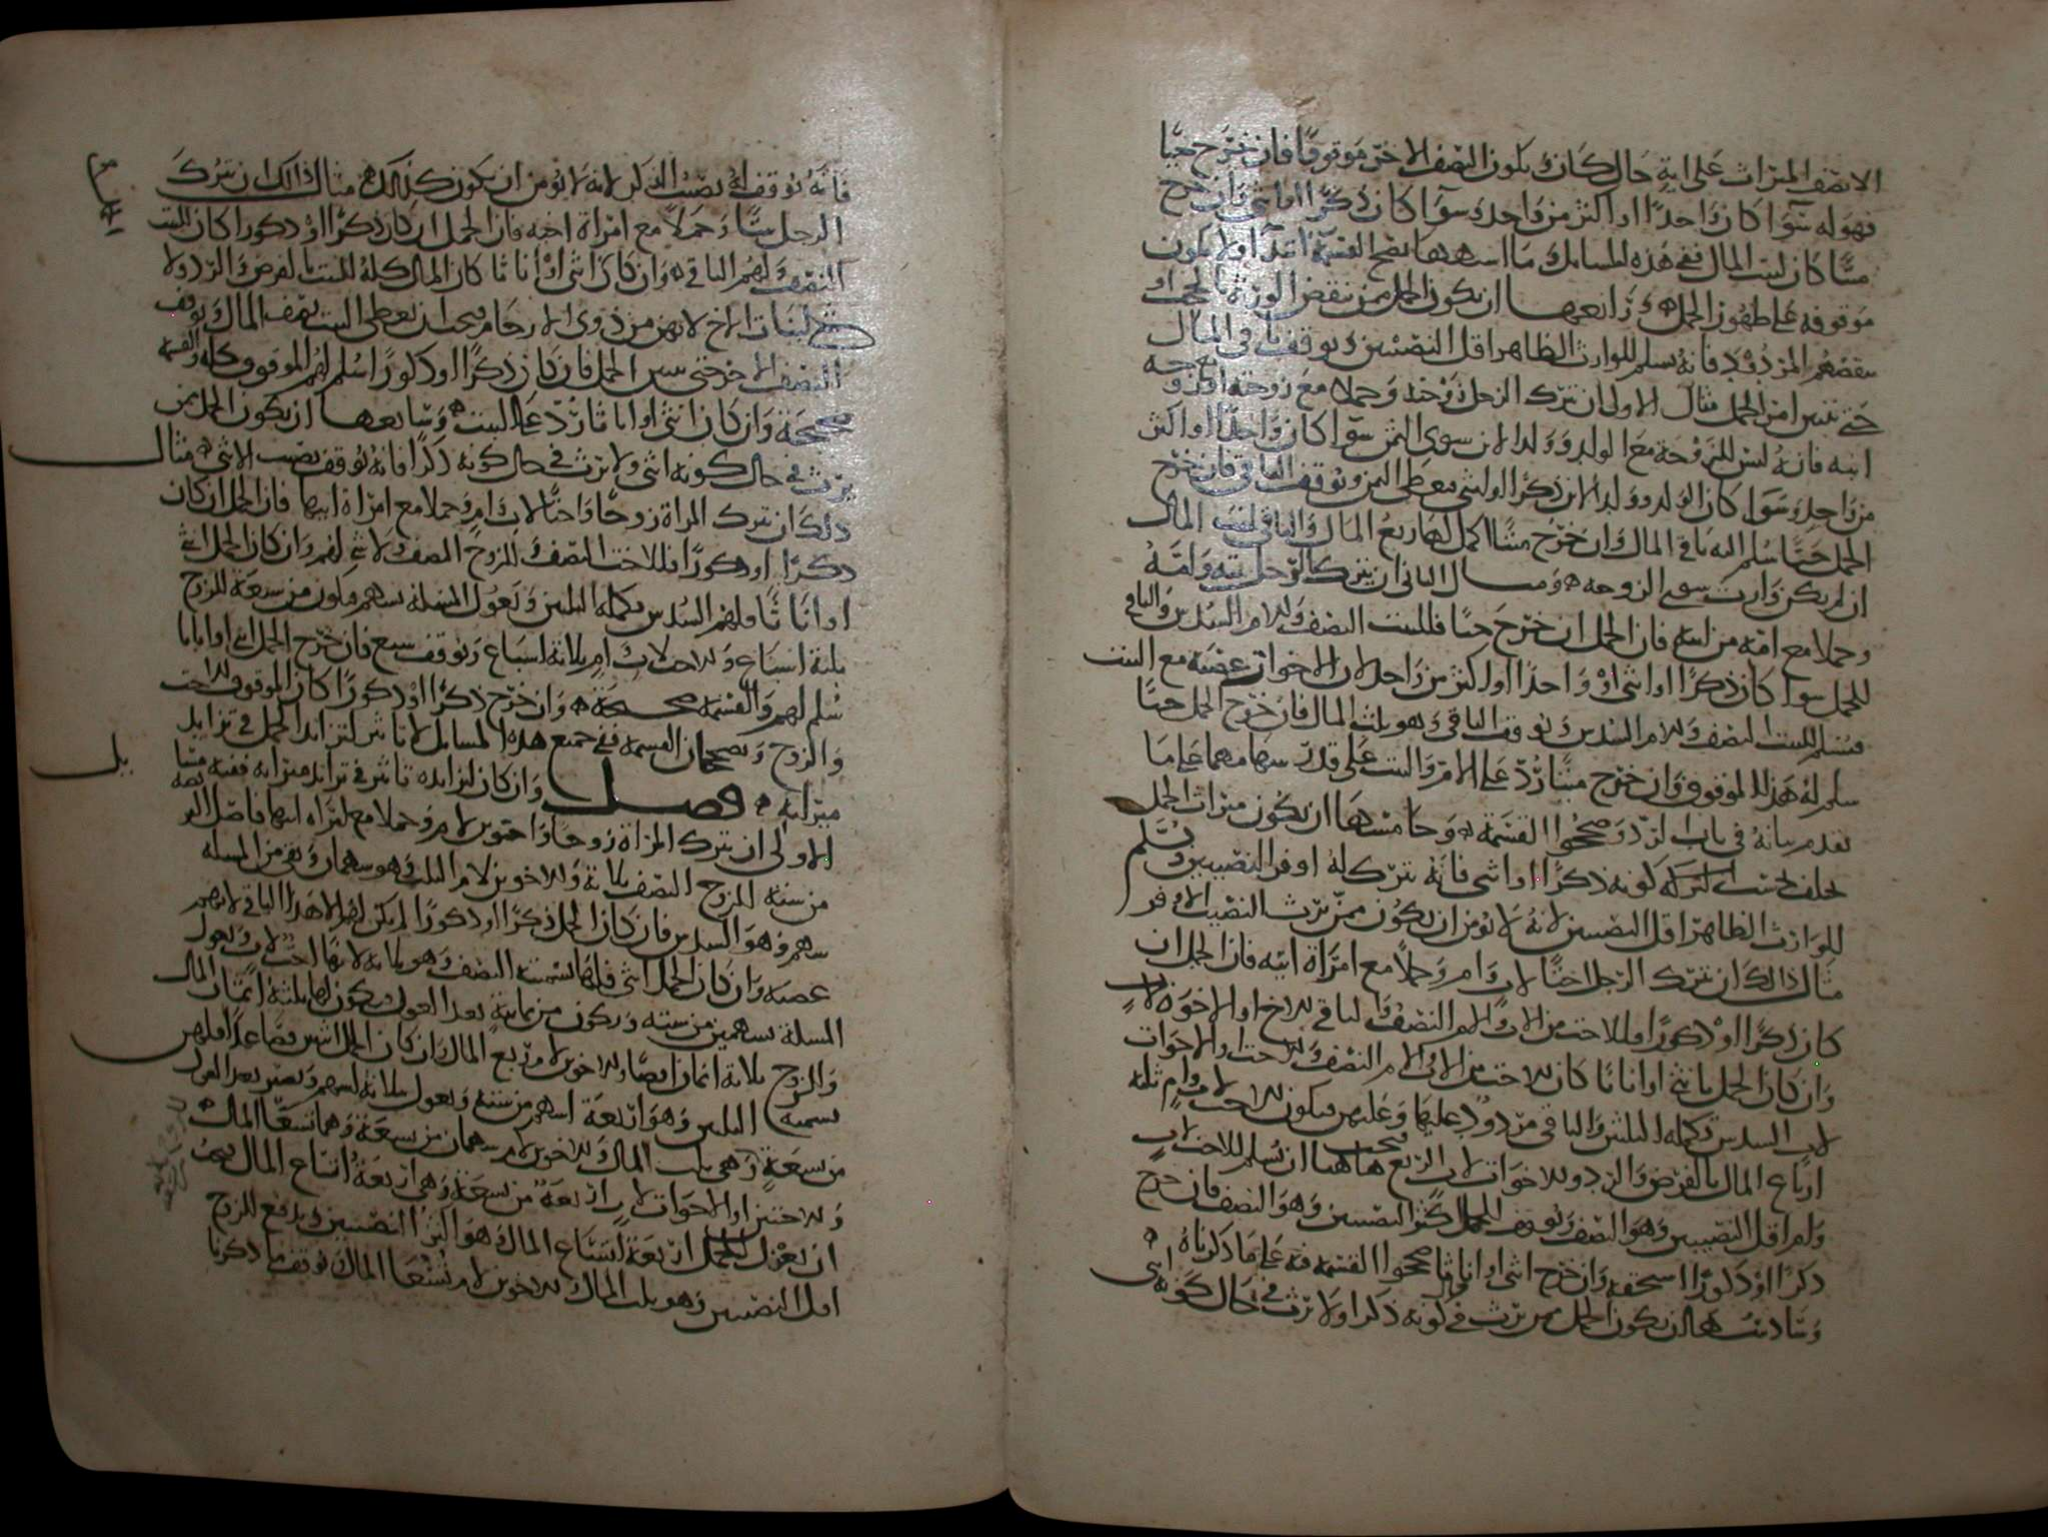 الا نصف الميراث على اية حال كان ويكون النصف الاخر موقوفا فان خرج حيا
فهو له سوا كان واحدا او اكثر من واحد وسوا كان ذكرا او انثى وان خرج
ميتا كان لبيت المال ففي هذه المسايل وما اشبهها تصح القسمة ابدا ولا يكون
موقوفه على ظهور الحمل ورابعها ان يكون الحمل ممن ينقض الورثة بالحجب او
ينقصهم المردود فانه يسلم للوارث الظاهر اقل النصيبين ويوقف باقي المال
حتى يتبين امر الحمل مثال الاولى ان يترك الرجل زوجته وحملا مع زوجته او زوجه
ابنه فانه ليس للزوجة مع الولد وولد الابن سوى الثمن سوا كان واحدا او اكثر
من واحد وسوا كان الولد وولد الابن ذكرا او انثى فيعطى الثمن ويوقف الباقي فان خرج
الحمل حيا سلم اليه باقي المال وان خرج ميتا اكمل لها ربع المال والباقي لبيت المال
ان لم يكن وارث سوى الزوجه ومثال الثاني ان يترك الرجل بنته وامه
وحملا مع امه من ابيه فان الحمل ان خرج حيا فللبنت النصف وللام السدس والباقي
للحمل سوا كان ذكرا او انثى او واحدا او اكثر من واحد لان الاخوات عصبة مع البنت
فيسلم للبنت النصف وللام السدس ويوقف الباقي وهو ثلث المال فان خرج الحمل حيا
سلم له هذا الموقوف وان خرج ميتا رد على الام والبنت على قدر سهامهما على ما
تقدم بيانه في باب الرد وصححوا القسمة وخامسها ان يكون ميراث الحمل
يختلف بحسب كونه ذكرا او انثى فانه يترك له اوفر النصيبين ويسلم
للوارث الظاهر اقل النصيبين لانه لا يؤمن ان يكون ممن يرث النصيب الاوفر
مثال ذالك ان يترك الرجل اختا لاب وام وحملا مع امراة ابيه فان الحمل ان
كان ذكرا او ذكورا فللاخت من الاب والام النصف والباقي للاخ او الاخوة لاب
وان كان الحمل بانثى او اناثا كان للاخت من الاب والام النصف وللاخت او الاخوات
لاب السدس تكملة الثلثين والباقي مردود عليها وعليهن فيكون للاخت لاب وام ثلثة
ارباع المال بالفرض والرد وللاخوات لاب الربع فيجب هاهنا ان يسلم للاخت لاب
وام اقل النصيبين وهو النصف ويوقف للحمل اكثر النصيبين وهو النصف فان خرج
ذكرا او ذكورا استحقه وان خرج انثى او اناثا صححوا القسمة فيه على ما ذكرناه
وسادسها ان يكون الحمل ممن يرث في كونه ذكرا ولا يرث في حال كونه انثى
فانه يوقف له نصيب الذكر لانه لا يؤمن ان يكون كذلك مثال ذالك ان يترك
الرجل بنتا وحملا مع امراة اخيه فان الحمل ان كان ذكرا او ذكورا كان للبنت
النصف ولهم الباقي وان كان انثى او اناثا كان المال كله للبنت بالفرض والرد ولا
شي لبنات الاخ لانهن من ذوي الارحام فيجب ان يعطى البنت نصف المال ويوقف
النصف الاخر حتى يتبين الحمل فان كان ذكرا او ذكورا سلم لهم الموقوف كله والقسمة
صحيحة وان كان انثى او اناثا رد على البنت وسابعها ان يكون الحمل ممن
يرث في حال كونه انثى ولا يرث في حال كونه ذكرا فانه يوقف نصيب الانثى مثال
ذلك ان تترك المراة زوجا واختا لاب وام وحملا مع امراة ابيها فان الحمل ان كان
ذكرا او ذكورا فللاخت النصف وللزوج النصف ولا شي لهم وان كان الحمل انثى
او اناثا فلهم السدس تكملة الثلثين وتعول المسلة بسهم فيكون من سبعة للزوج
ثلثة اسباع وللاخت لاب وام ثلاثة اسباع ويوقف سبع فان خرج الحمل انثى او اناثا
سلم لهم والقسمة صحيحة وان خرج ذكرا او ذكورا كان الموقوف للاخت
والزوج ويصححان القسمة ففي جميع هذه المسايل لا تاثير لتزايد الحمل في تزايد
ميراثه فصل وان كان لتزايده تاثير في تزايد ميراثه ففيه مسايل
الاولى ان تترك المراة زوجا واخوين لام وحملا مع امراة ابيها فاصل الفريضه
من ستة للزوج النصف ثلاثة وللاخوين لام الثلث وهو سهمان وبقي من المسلة
سهم وهو السدس فان كان الحمل ذكرا او ذكورا لم يكن لهم الا هذا الباقي لانهم
عصبة وان كان الحمل انثى فلها تسمية النصف وهو ثلاثة لانها اخت لاب وتعول
المسلة بسهمين من ستة ويكون من ثمانية بعد العول فيكون لها ثلثة اثمان المال
وللزوج ثلاثة اثمان ايضا وللاخوين لام ربع المال وان كان الحمل انثيين فصاعدا فلهن
تسمية الثلثين وهو اربعة اسهم من ستة وتعول بثلاثة اسهم وتصير بعد العول
من تسعة وهي ثلث المال وللاخوين لام سهمان من تسعة وهما تسعا المال
وللاختين او الاخوات لاب اربعة من تسعة وهي اربعة اتساع المال فيجب
ان يعزل للحمل اربعة اتساع المال وهو اكثر النصيبين ويدفع للزوج
اقل النصيبين وهو ثلث المال وللاخوين لام تسعا المال ويوقف ما ذكرنا